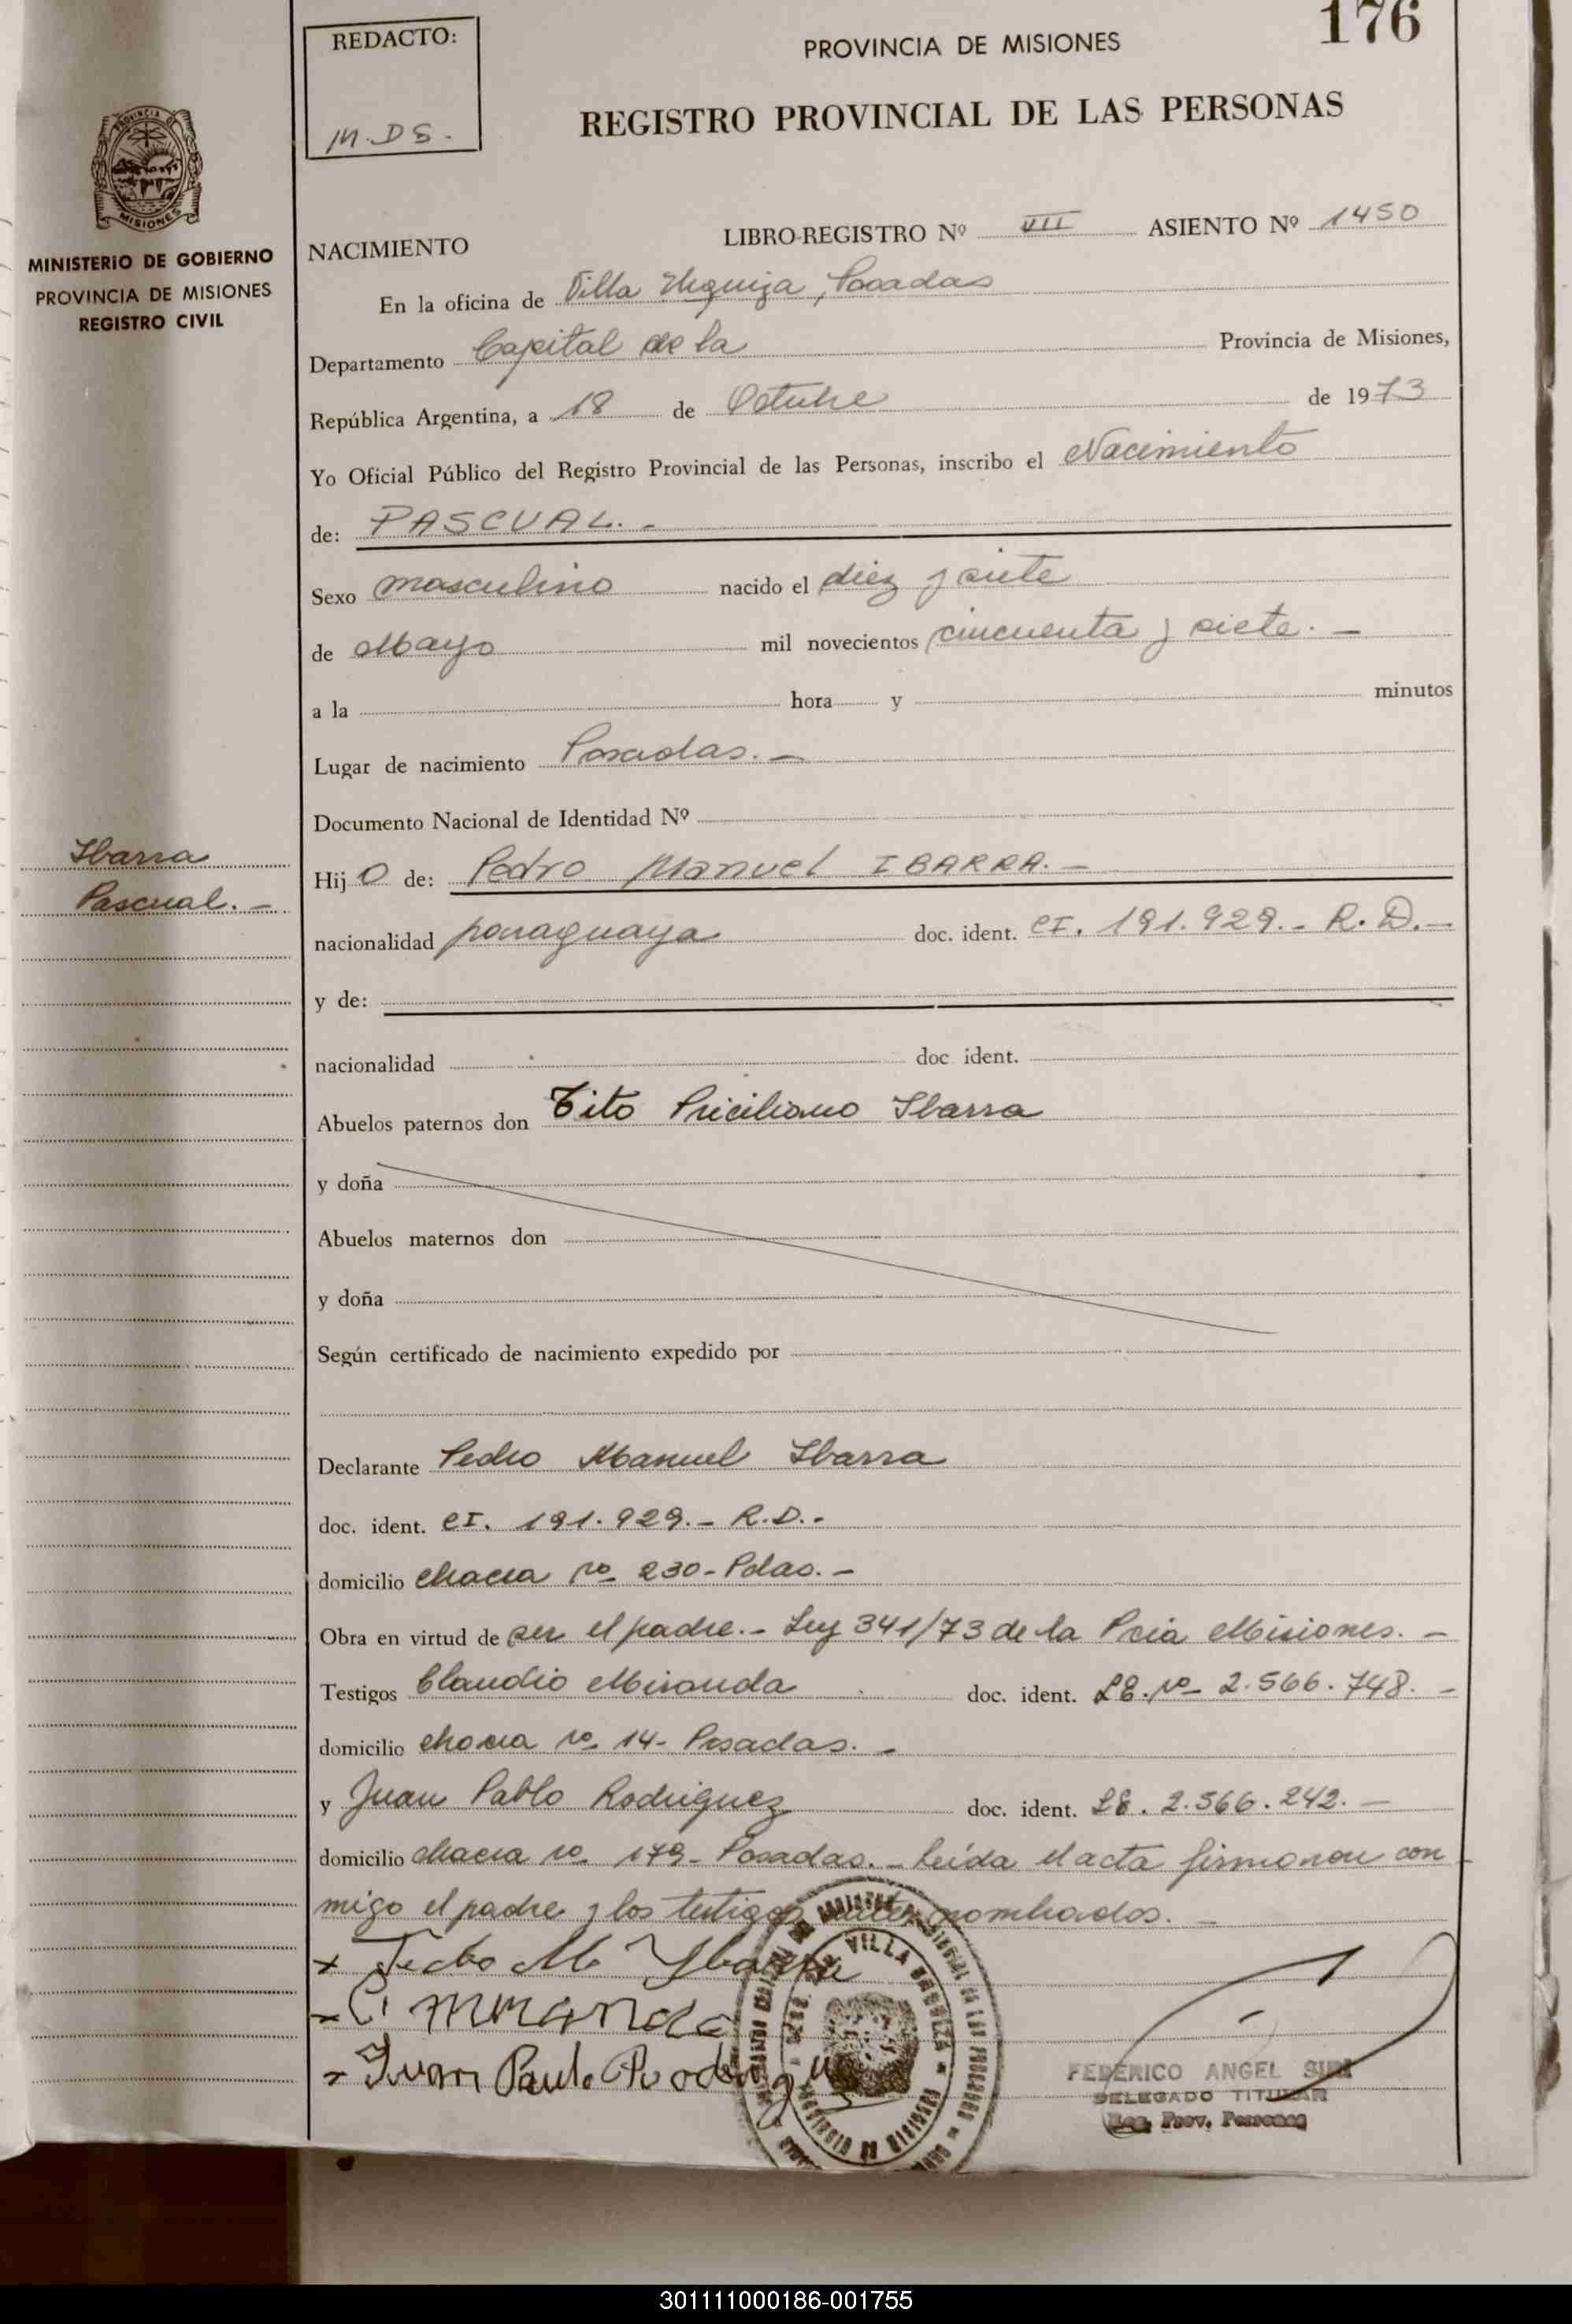 176
REDACTO:
M.DS.
PROVINCIA DE MISIONES
REGISTRO PROVINCIAL DE LAS PERSONAS
MISIONES
MINISTERIO DE GOBIERNO
PROVINCIA DE MISIONES
REGISTRO CIVIL
NACIMIENTO LIBRO-REGISTRO Nº VII ASIENTO Nº 1450
En la oficina de Villa Urquiza, Posadas
Departamento Capital de la Provincia de Misiones,
República Argentina, a 18 de Octubre de 1973
Yo Oficial Público del Registro Provincial de las Personas, inscribo el Nacimiento
de: PASCUAL. -
Sexo masculino nacido el diez y siete
de Mayo mil novecientos cincuenta y siete. -
a la hora y minutos
Lugar de nacimiento Posadas. -
Documento Nacional de Identidad Nº
Ibarra
Pascual. -
Hij o de: Pedro Manuel IBARRA. -
nacionalidad paraguaya doc. ident. CI. 191.929.- R.D.-
y de:
nacionalidad doc ident.
Abuelos paternos don Tito Priciliano Ibarra
y doña
Abuelos maternos don
y doña
Según certificado de nacimiento expedido por
Declarante Pedro Manuel Ibarra
doc. ident. CI. 191.929.- R.D.-
domicilio chacra nº 230- Pdas. -
Obra en virtud de ser el padre.- Ley 341/73 de la Pcia Misiones. -
Testigos Claudio Miranda doc. ident. LE. nº 2.566.748. -
domicilio chacra nº 14- Posadas. -
y Juan Pablo Rodriguez doc. ident. LE. 2.566.242. -
domicilio chacra nº 179- Posadas. - Leída el acta firmaron con
migo el padre y los testigos antes nombrados. -
x Pedro M Ybarra
- C. Miranda
- Juan Paulo Rodrigu
VILLA URQUIZA
FEDERICO ANGEL
DELEGADO TITULAR
Reg. Prov. Personas
301111000186-001755